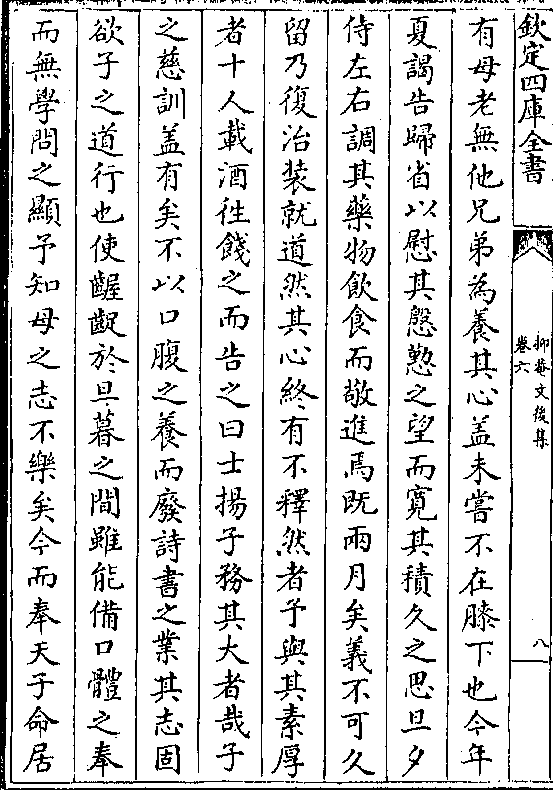 欽定四庫全書
抑菴文後集
卷六
八
有母老無他兄弟為養其心盖未嘗不在膝下也今年
夏謁告歸省以慰其慇懃之望而寛其積久之思旦夕
侍左右調其藥物飲食而敬進焉既兩月矣義不可久
留乃復治装就道然其心終有不釋然者予與其素厚
者十人載酒徃餞之而告之曰士揚子務其大者哉子
之慈訓盖有矣不以口腹之養而廢詩書之業其志固
欲子之道行也使齷齪於旦暮之間雖能備口體之奉
而無學問之顯予知母之志不樂矣今而奉天子命居